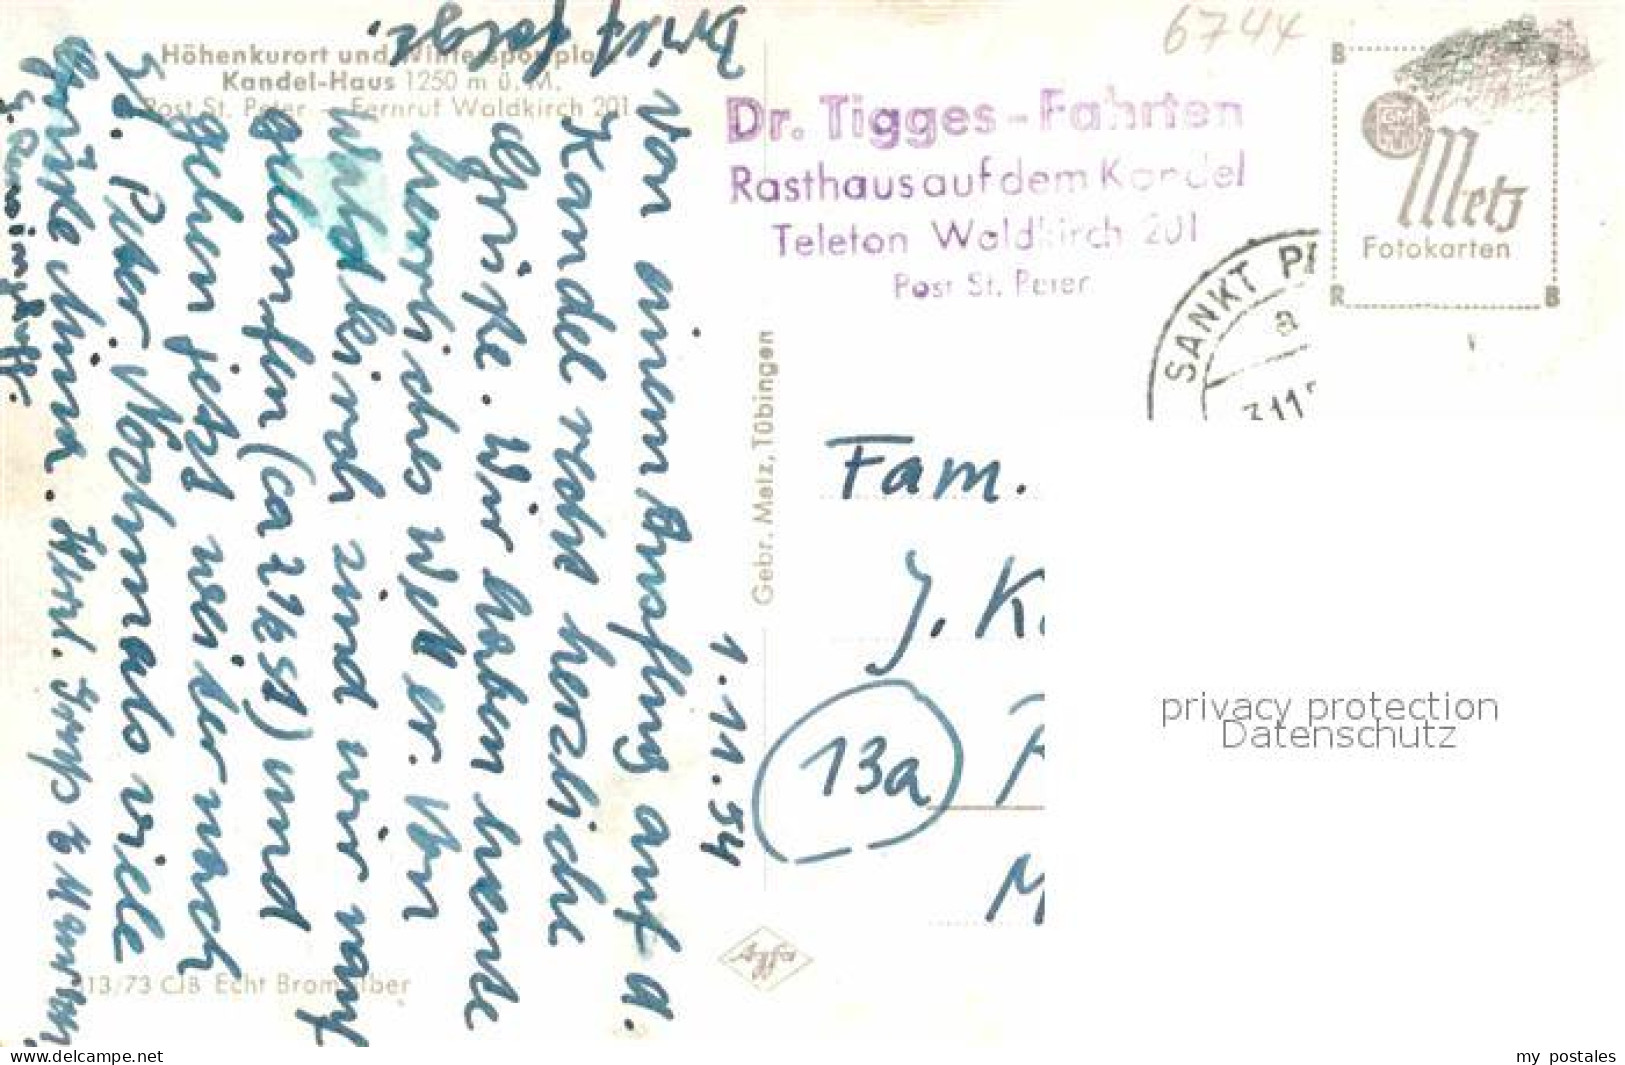 Höhenkurort und Wintersportplatz
Kandel-Haus 1250 m ü. M.
Post St. Peter - Fernruf Waldkirch 201
Brief folgt.
1.11.54
Von einem Ausflug auf d.
Kandel recht herzliche
Grüße. Wir haben heute
herrliches Wetter. Von
Waldkirch sind wir rauf
gelaufen (ca 2 1/2 st) und
gehen jetzt wieder nach
St. Peter. Nochmals viele
Grüße
13/73 CJB Echt Bromsilber
Gebr. Metz, Tübingen
Agfa
6744
Dr. Tigges-Fahrten
Rasthaus auf dem Kandel
Telefon Waldkirch 201
Post St. Peter
SANKT PE
a
Metz
Fotokarten
Fam.
J. K
13a
M
privacy protection
Datenschutz
www.delcampe.net
my_postales